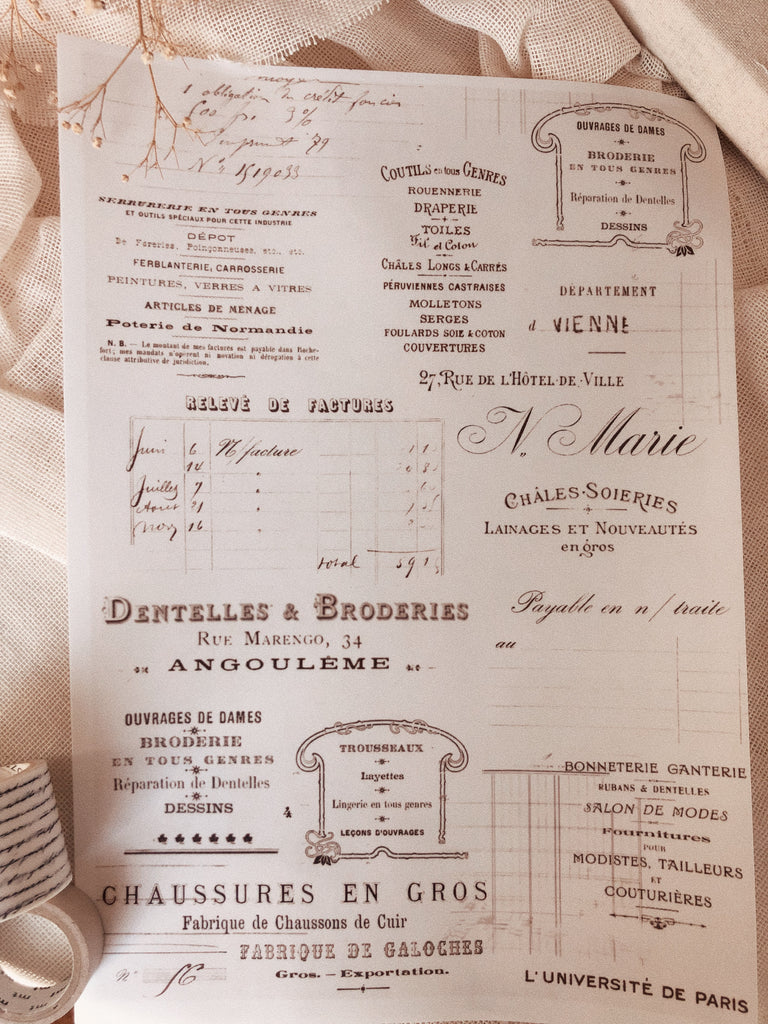 1 obligation du crédit foncier
500 fr. 3%
Emprunt 79
N° 1519033
SERRURERIE EN TOUS GENRES
ET OUTILS SPÉCIAUX POUR CETTE INDUSTRIE
DÉPÔT
De Féreries, Poinçonneuses, etc., etc.
FERBLANTERIE, CARROSSERIE
PEINTURES, VERRES A VITRES
ARTICLES DE MENAGE
Poterie de Normandie
N. B. — Le montant de mes factures est payable dans Roche-
fort; mes mandats n'operent ni novation ni dérogation à cette
clause attributive de juridiction.
COUTILS en tous GENRES
ROUENNERIE
DRAPERIE
TOILES
Fil et Coton
CHÂLES LONGS & CARRÉS
PÉRUVIENNES CASTRAISES
MOLLETONS
SERGES
FOULARDS SOIE & COTON
COUVERTURES
OUVRAGES DE DAMES
BRODERIE
EN TOUS GENRES
Réparation de Dentelles
DESSINS
DÉPARTEMENT
d VIENNE
27, RUE DE L'HÔTEL-DE-VILLE
N. Marie
CHÂLES-SOIERIES
LAINAGES ET NOUVEAUTÉS
en gros
RELEVÉ DE FACTURES
Juin 6 N/facture
14
Juillet 7
Aout 21
Nov 16
total
DENTELLES & BRODERIES
RUE MARENGO, 34
ANGOULÊME
Payable en n/ traite
au
OUVRAGES DE DAMES
BRODERIE
EN TOUS GENRES
Réparation de Dentelles
DESSINS
4
TROUSSEAUX
Layettes
Lingerie en tous genres
LEÇONS D'OUVRAGES
BONNETERIE GANTERIE
RUBANS & DENTELLES
SALON DE MODES
Fournitures
POUR
MODISTES, TAILLEURS
ET
COUTURIÈRES
CHAUSSURES EN GROS
Fabrique de Chaussons de Cuir
FABRIQUE DE GALOCHES
Gros. — Exportation.
N° 56
L'UNIVERSITÉ DE PARIS